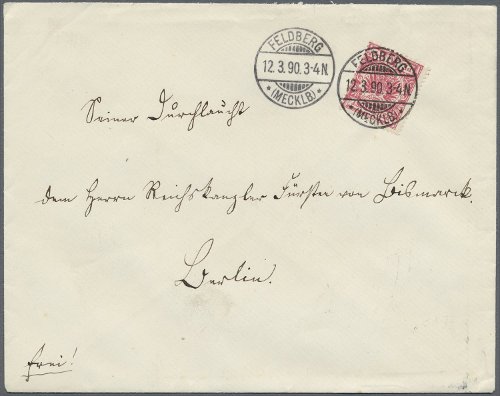 FELDBERG
12.3.90.3-4N.
*(MECKLB)*
FELDBERG
12.3.90.3-4N.
*(MECKLB)*
Seiner Durchlaucht
dem Herrn Reichskanzler Fürsten von Bismarck.
Berlin.
frei!